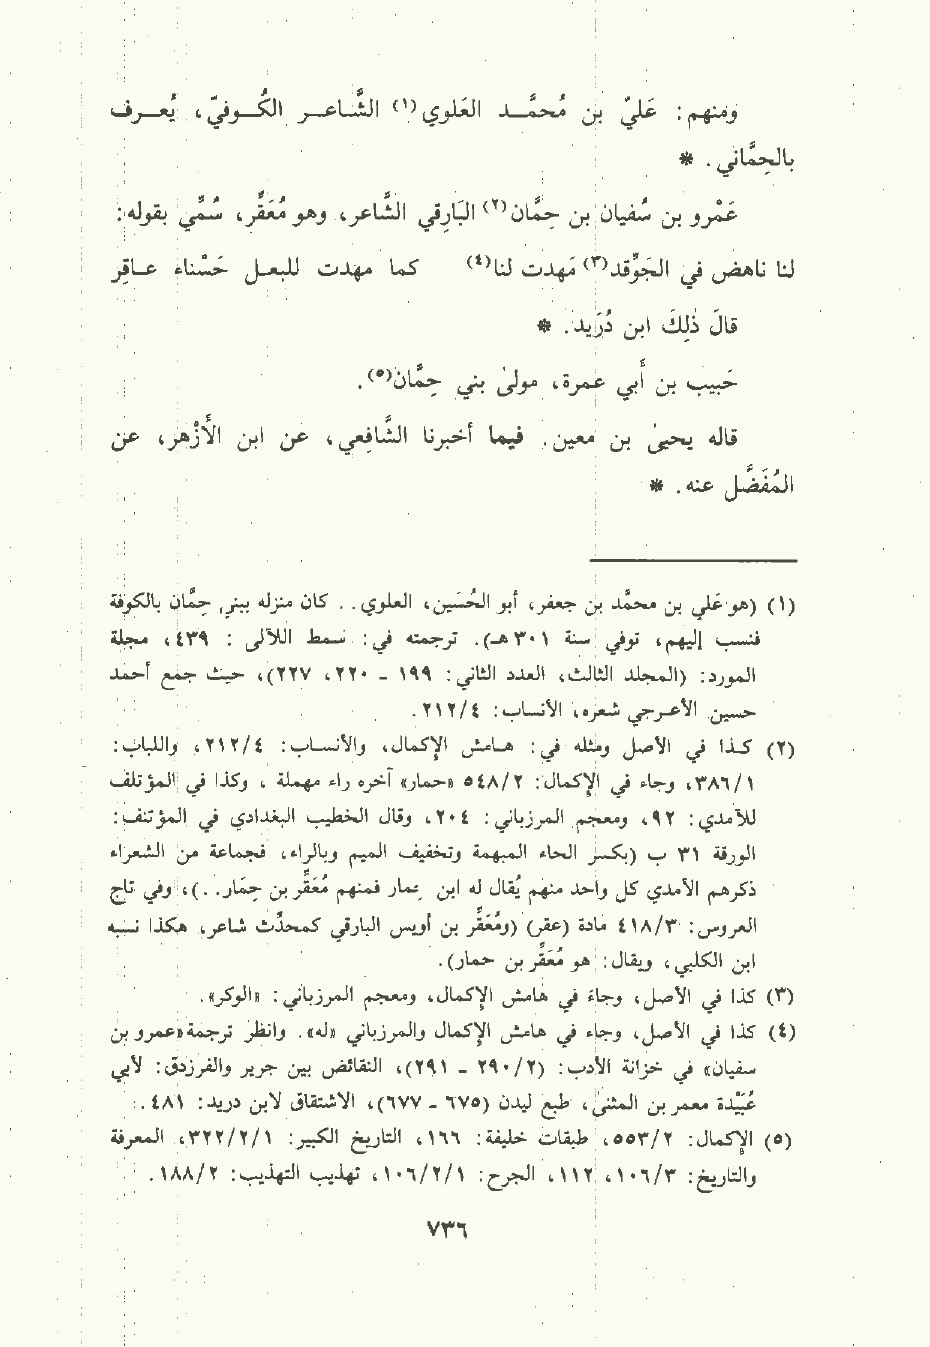 ومنهم: عَليّ بن مُحمَّد العَلوي(١) الشَّاعر الكُوفيّ، يُعرف
بالحِمَّاني. *
عَمْرو بن سُفيان بن حِمَّان(٢) البَارِقي الشَّاعر، وهو مُعَقِّر، سُمِّي بقوله:
لنا ناهض في الجَوِّقد(٣) مَهدت لنا(٤) كما مهدت للبعل حَسْناء عاقِر
قالَ ذَلِكَ ابن دُرَيد. *
حَبيب بن أَبي عمرة، مولىٰ بني حِمَّان(٥).
قاله يحيىٰ بن معين. فيما أخبرنا الشَّافِعي، عن ابن الأَزْهر، عن
المُفَضَّل عنه. *
(١) (هو عَلي بن محمَّد بن جعفر، أبو الحُسَين، العلوي.. كان منزله ببني حِمَّان بالكوفة
فنسب إليهم، توفي سنة ٣٠١هـ). ترجمته في: سمط اللآلى : ٤٣٩، مجلة
المورد: (المجلد الثالث، العدد الثاني: ١٩٩ - ٢٢٠، ٢٢٧)، حيث جمع أحمد
حسين الأعرجي شعره، الأنساب: ٢١٢/٤.
(٢) كذا في الأصل ومثله في: هامش الإكمال، والأنساب: ٢١٢/٤، واللباب:
٣٨٦/١، وجاء في الإكمال: ٥٤٨/٢ «حمار» آخره راء مهملة ، وكذا في المؤتلف
للآمدي: ٩٢، ومعجم المرزباني: ٢٠٤، وقال الخطيب البغدادي في المؤتنف:
الورقة ٣١ ب (بكسر الحاء المبهمة وتخفيف الميم وبالراء، فجماعة من الشعراء
ذكرهم الآمدي كل واحد منهم يُقال له ابن عمار فمنهم مُعَقِّر بن حِمَار..)، وفي تاج
العروس: ٤١٨/٣ مادة (عقر) (ومُعَقِّر بن أويس البارقي كمحدِّث شاعر، هكذا نسبه
ابن الكلبي، ويقال: هو مُعَقِّر بن حمار).
(٣) كذا في الأصل، وجاءَ في هامش الإكمال، ومعجم المرزباني: «الوكر».
(٤) كذا في الأصل، وجاء في هامش الإكمال والمرزباني «له». وانظر ترجمة«عمرو بن
سفيان» في خزانة الأدب: (٢٩٠/٢ - ٢٩١)، النقائض بين جرير والفرزدق: لأبي
عُبَيْدة معمر بن المثنىٰ، طبع ليدن (٦٧٥ - ٦٧٧)، الاشتقاق لابن دريد: ٤٨١.
(٥) الإكمال: ٥٥٣/٢، طبقات خليفة: ١٦٦، التاريخ الكبير: ٣٢٢/٢/١، المعرفة
والتاريخ: ١٠٦/٣، ١١٢، الجرح: ١٠٦/٢/١، تهذيب التهذيب: ١٨٨/٢.
٧٣٦